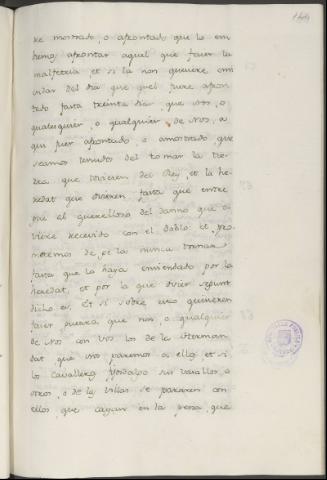 144
re mostrado, o afrontado que lo em
biemos afrontar aquel que faser la
malfetria, et si la non quisiere emi
endar del dia que quel fuere afron
tado fasta treinta dias que vos, o
qualesquier, o qualquier de nos, a
qui fuer afrontado, o amostrado que
seamos tenudos del tomar la tie-
rra que tovieren del Rey, et la he-
redat que ovieren fasta que entre
gue al querelloso del danno que o-
viere recevido con el doblo et pro
metemos de ge la nunca tornar
fasta que la haya emendado por la
heredat, et por la que dicho
dicho es. Et si sobre esto quisieren
facer fuerza que nos, o qualquier
de nos con vos los de la Herman
dat que nos paremos a ello, et si
los cavalleros fijosdalgo sus vasallos, o
otros, o de las villas se pararen con
ellos, que cayan en la pena que